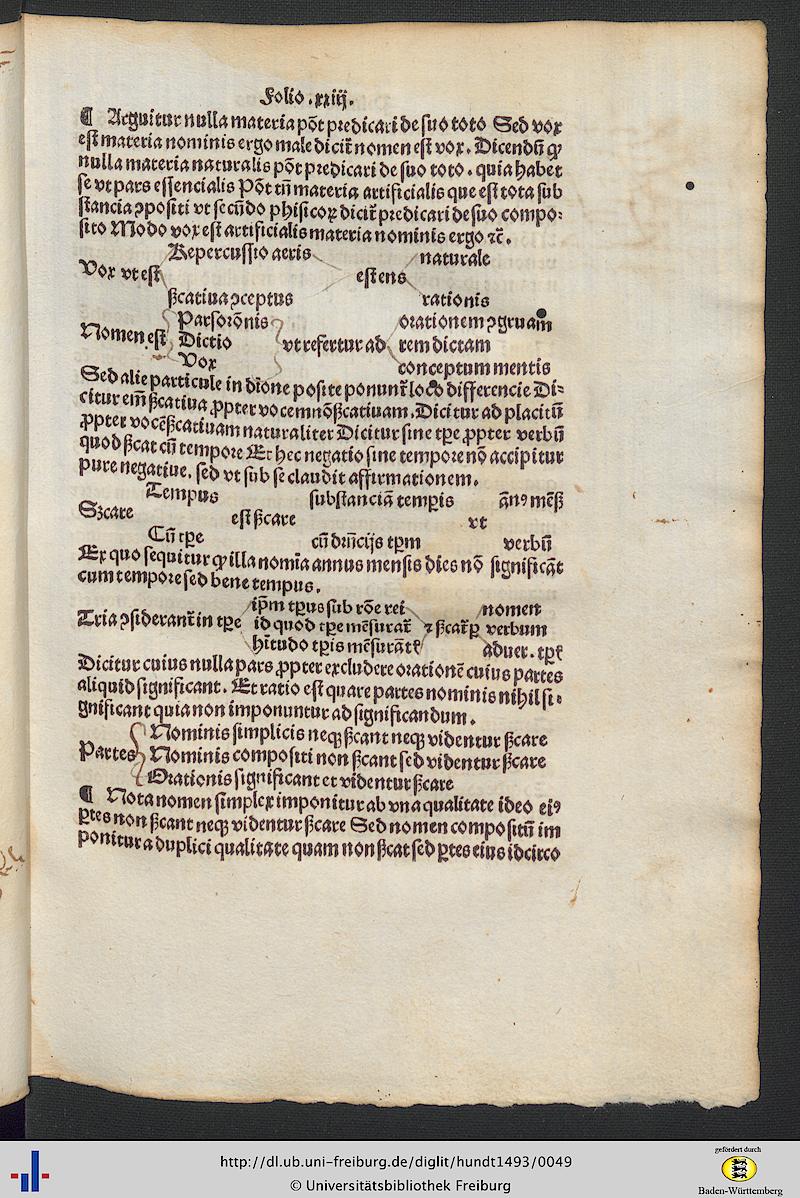 Folio .xxiij.
¶ Arguitur nulla materia põt predicari de suo toto Sed vox
est materia nominis ergo male dicit᷑ nomen est vox. Dicendũ ꝙ
nulla materia naturalis põt predicari de suo toto. quia habet
se vt pars essencialis Põt tñ materia artificialis que est tota sub
stancia ꝯpositi vt secũdo phisicoꝝ dicit᷑ predicari de suo compo⸗
sito Modo vox est artificialis materia nominis ergo ⁊c̃.
Repercussio aeris naturale
Vox vt est est ens
ẞcatiua ꝯceptus rationis
Pars orõnis orationem ꝯgruam
Nomen est Dictio vt refertur ad rem dictam
Vox conceptum mentis
Sed alie particule in diõne posite ponunt᷑ loco differencie Di⸗
citur em̃ ßcatiua ꝓpter vocem nõ ßcatiuam. Dicitur ad placitũ
ꝓpter vocẽ ßcatiuam naturaliter Dicitur sine tꝑe ꝓpter verbũ
quod ßcat cũ tempore Et hec negatio sine tempore nõ accipitur
pure negatiue. sed vt sub se claudit affirmationem.
Tempus substanciã temꝑis ãnꝰ mẽß
Szcare est ßcare vt
Cũ tꝑe cũ dr̃ncijs tꝑm verbũ
Ex quo sequitur ꝙ illa nomĩa annus mensis dies nõ significãt
cum tempore sed bene tempus.
ipm̃ tꝑus sub rõe rei nomen
Tria ꝯsiderant᷑ in tꝑe id quod tꝑe mẽsurat᷑ ⁊ ßcat᷑ ꝑ verbum
hĩtudo tꝑis mẽsurãtꝭ aduer. tꝑꝭ
Dicitur cuius nulla pars ꝓpter excludere orationẽ cuius partes
aliquid significant. Et ratio est quare partes nominis nihil si⸗
gnificant quia non imponuntur ad significandum.
Nominis simplicis neqꝫ ßcant neqꝫ videntur ßcare
Partes Nominis compositi non ßcant sed videntur ßcare
Orationis significant et videntur ßcare
¶ Nota nomen simplex imponitur ab vna qualitate ideo eiꝰ
ꝑtes non ßcant neqꝫ videntur ßcare Sed nomen compositũ im
ponitur a duplici qualitate quam non ßcat sed ꝑtes eius idcirco
http://dl.ub.uni-freiburg.de/diglit/hundt1493/0049
© Universitätsbibliothek Freiburg
gefördert durch
Baden-Württemberg